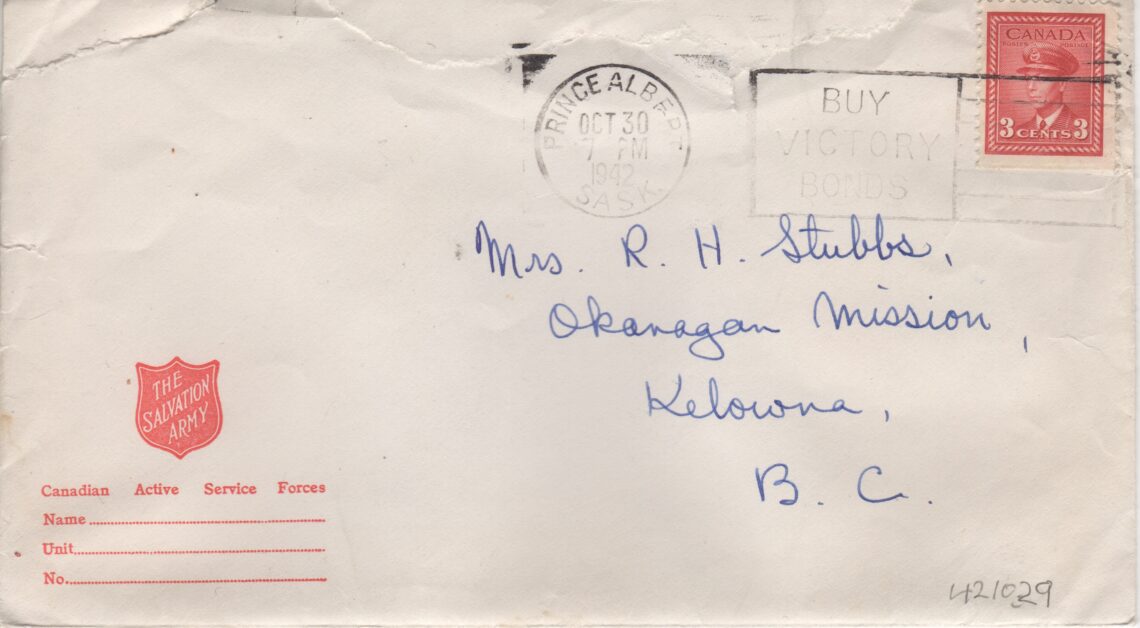 PRINCE ALBERT
OCT 30
7 PM
1942
SASK.
BUY
VICTORY
BONDS
CANADA
POSTES POSTAGE
3 CENTS 3
Mrs. R. H. Stubbs,
Okanagan Mission,
Kelowna,
B. C.
THE
SALVATION
ARMY
Canadian Active Service Forces
Name
Unit
No.
421029